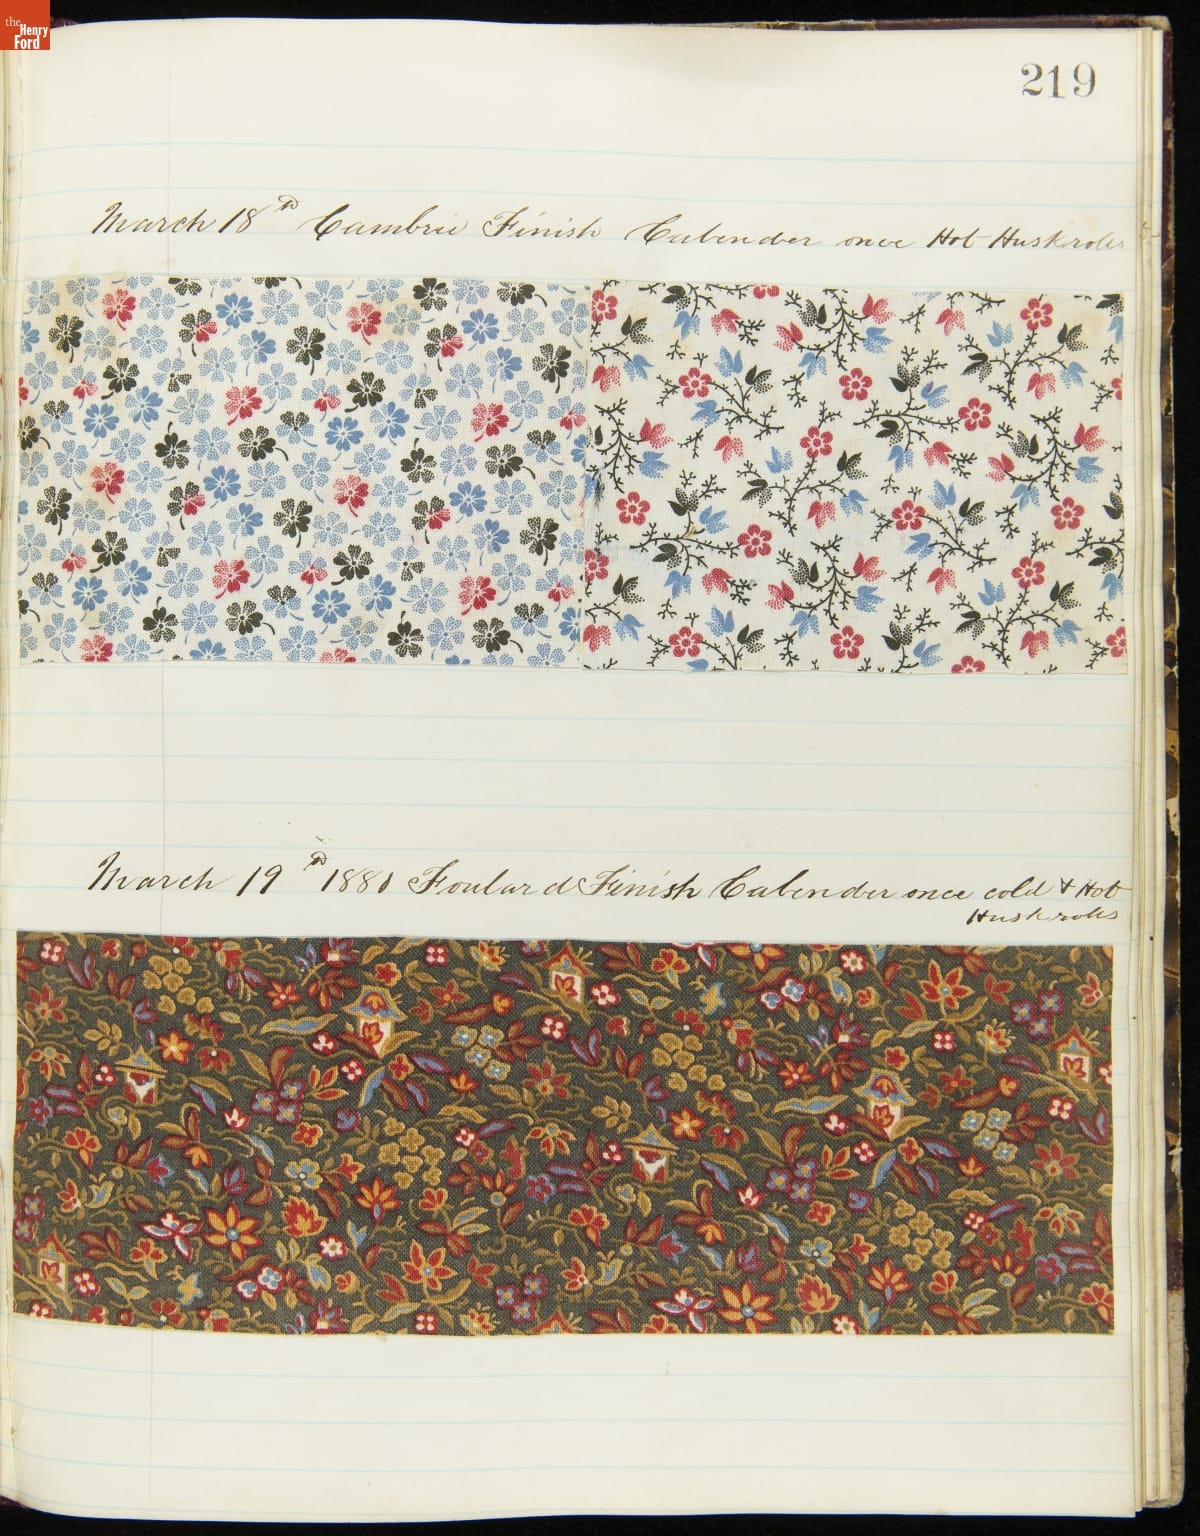 the
Henry
Ford
219
March 18th Cambric Finish Calender once Hot Huskrolls
March 19th 1881 Foulard Finish Calender once cold & Hot
Huskrolls